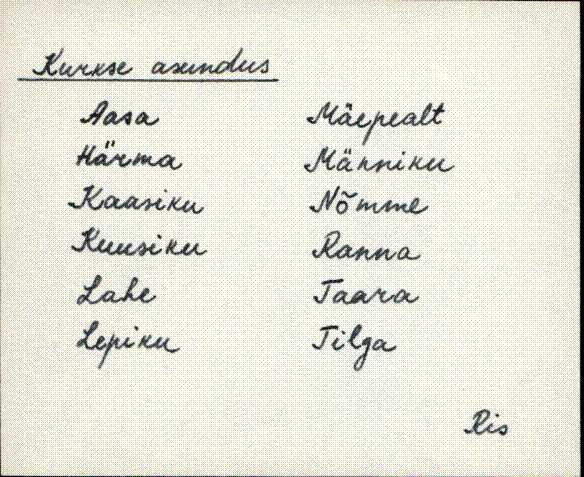 Kurkse asundus
Aasa
Härma
Kaasiku
Kuusiku
Lahe
Lepiku
Mäepealt
Männiku
Nõmme
Ranna
Taara
Tilga
Ris